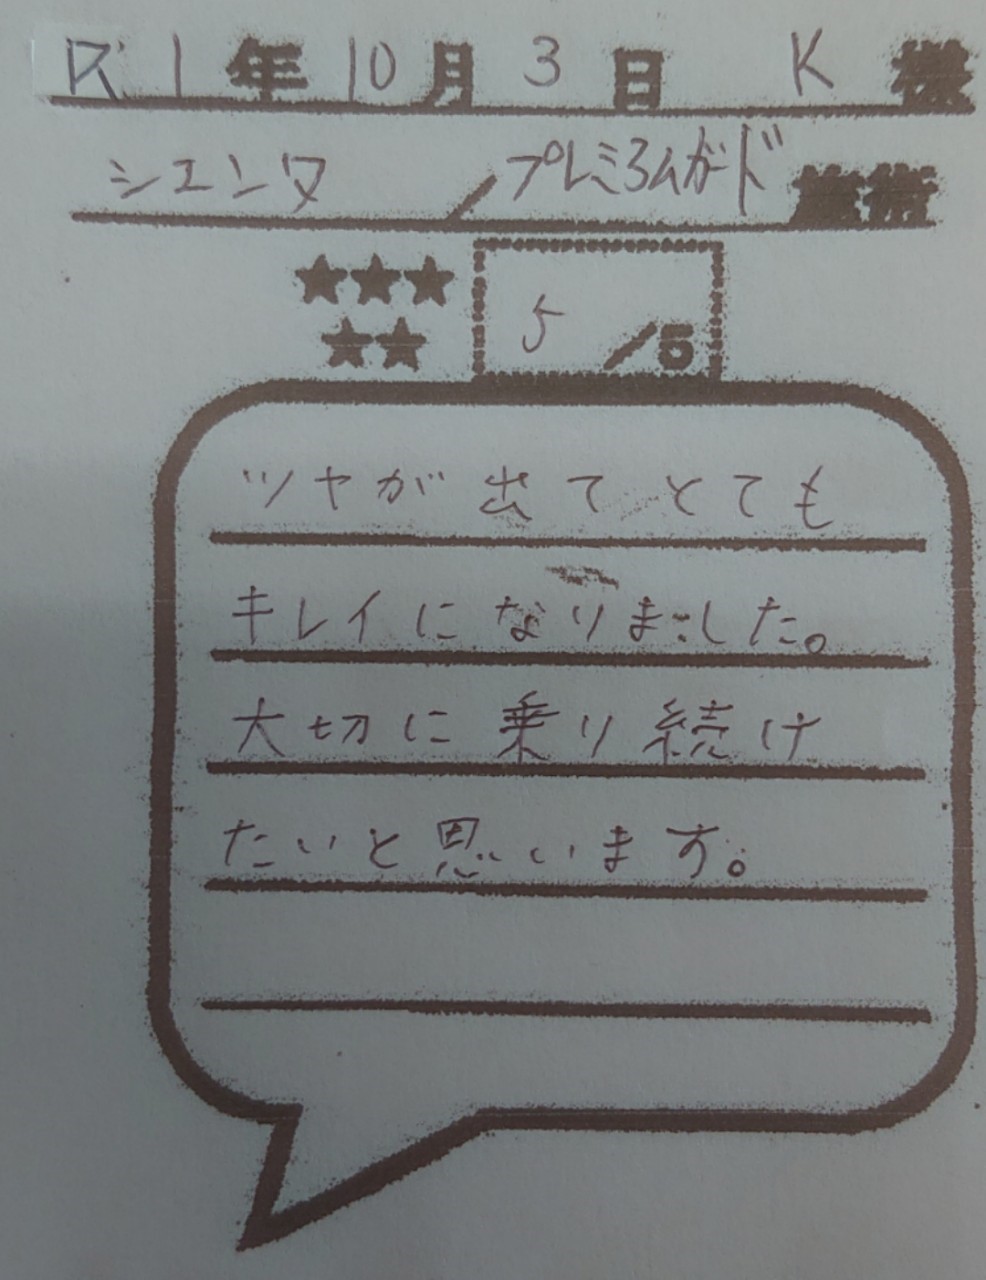 R1年10月3日 K様
シエンタ/プレミアムガード施術
★★★
5/5
★★
ツヤが出てとても
キレイになりました。
大切に乗り続け
たいと思います。